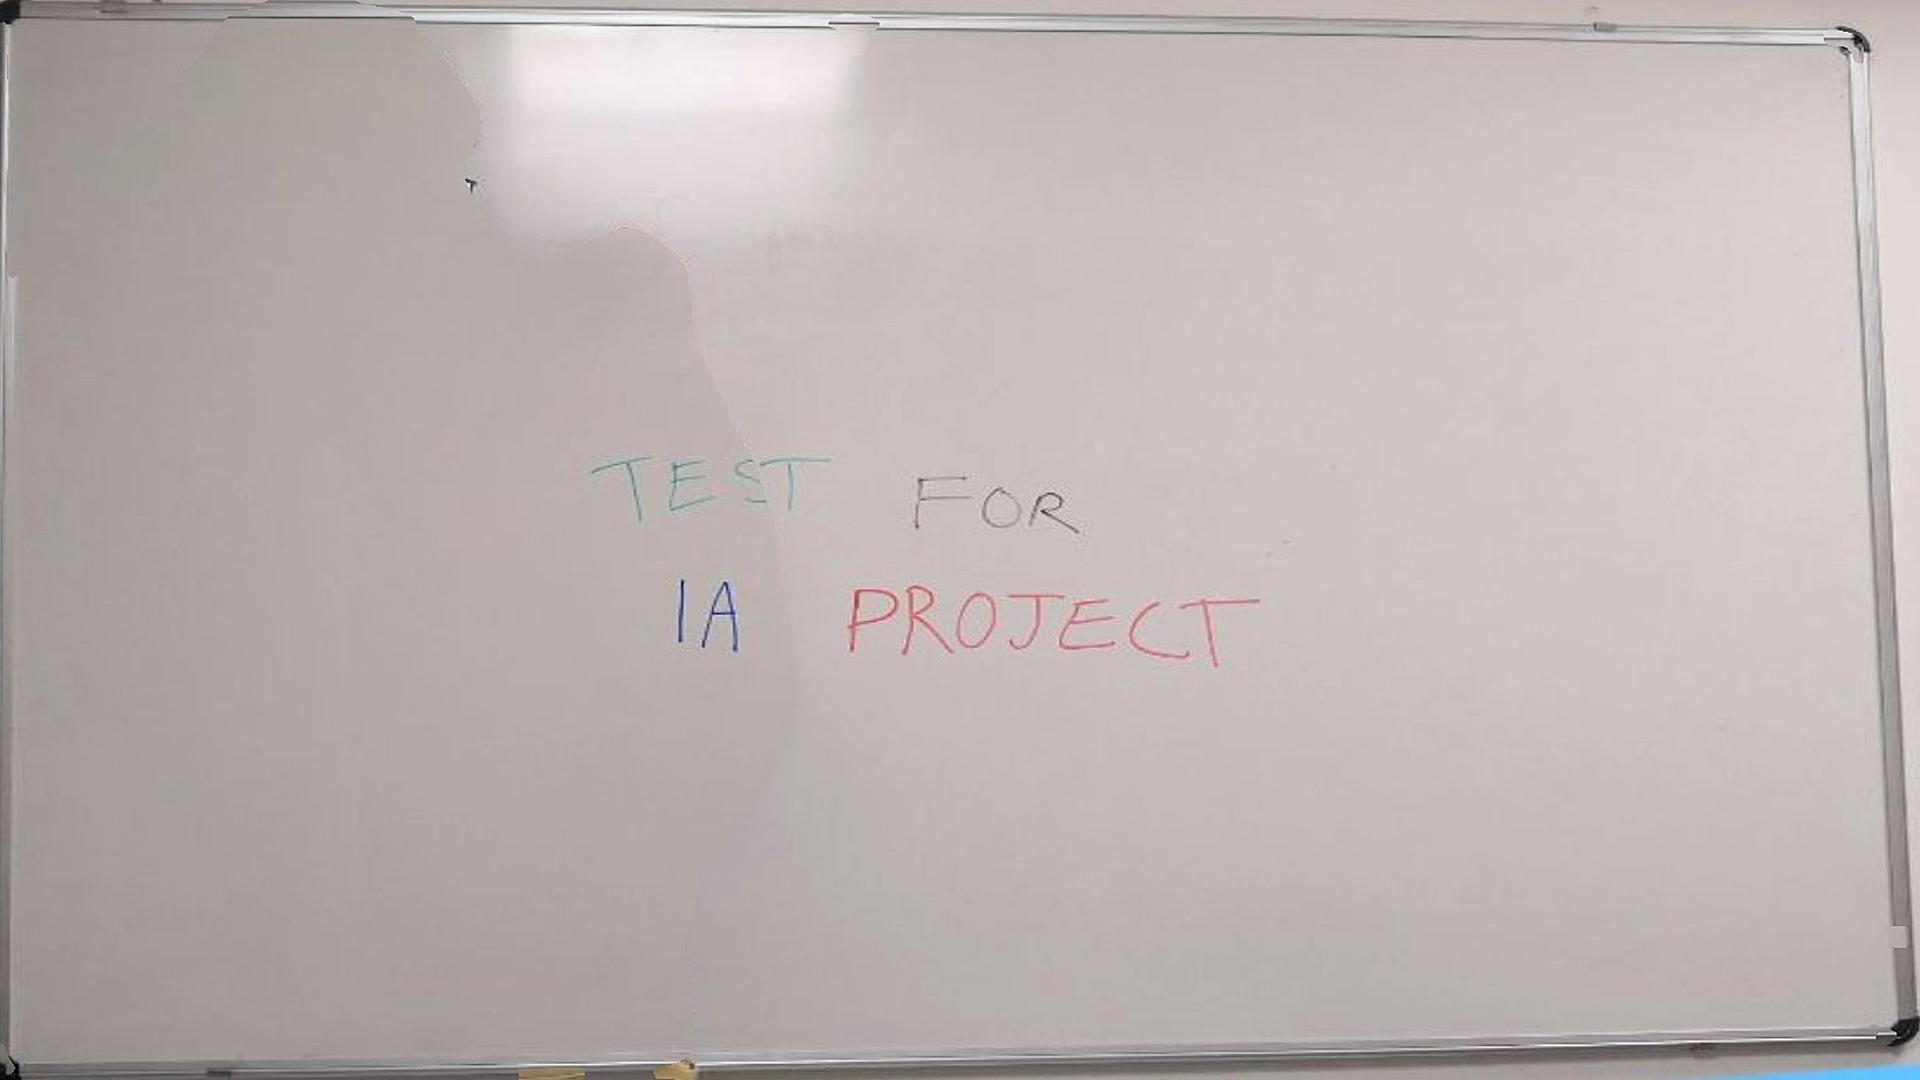 TEST FOR
IA PROJECT